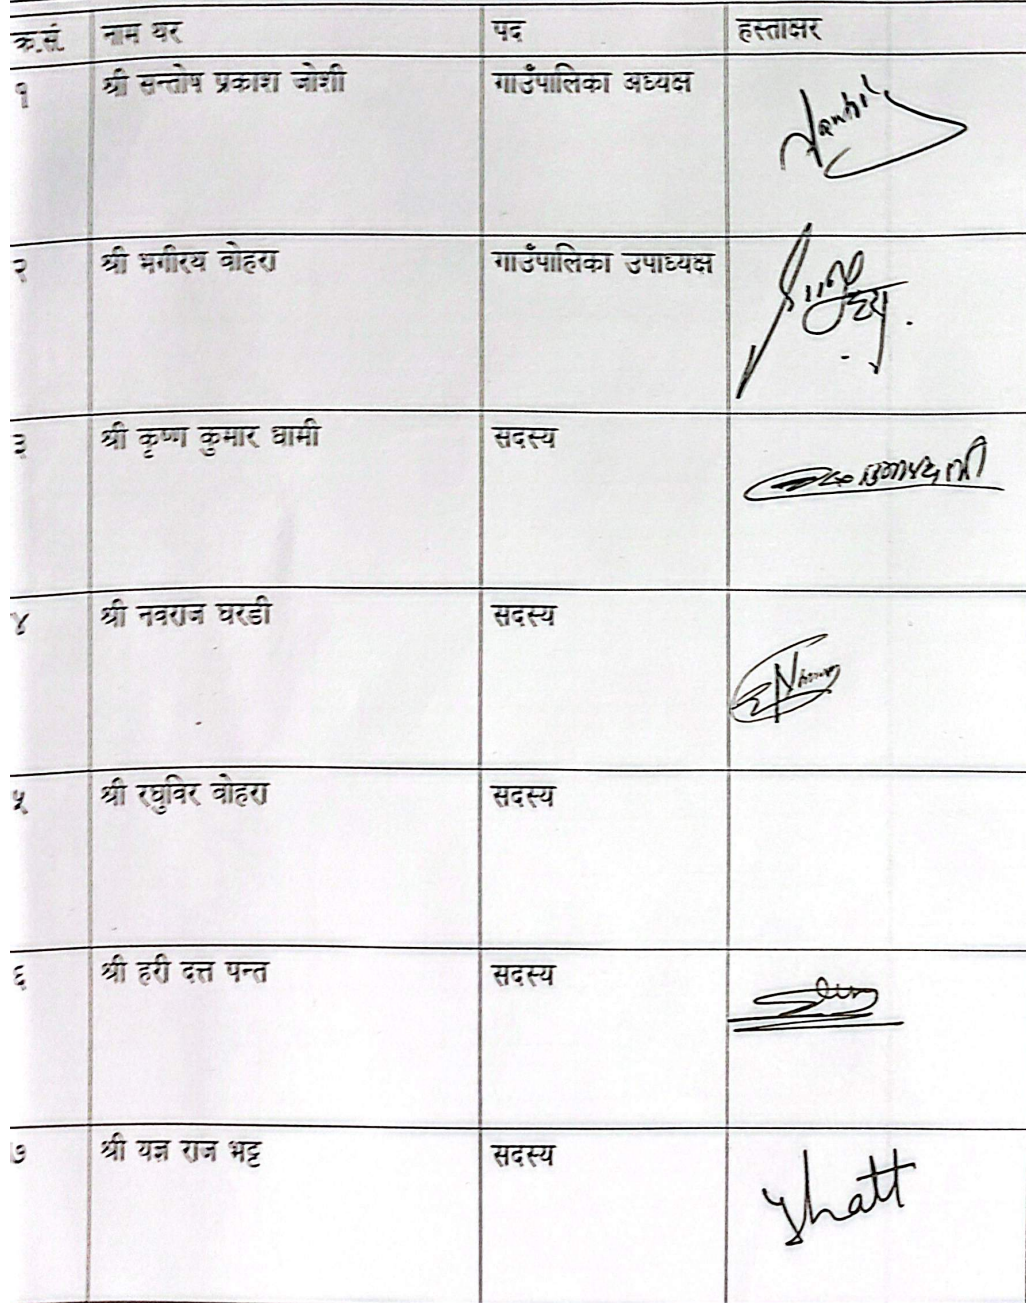 क्र.सं. नाम थर पद हस्ताक्षर
१ श्री सन्तोष प्रकाश जोशी गाउँपालिका अध्यक्ष
२ श्री भगीरथ वोहरा गाउँपालिका उपाध्यक्ष
३ श्री कृष्ण कुमार धामी सदस्य
४ श्री नवराज घरडी सदस्य
५ श्री रघुविर वोहरा सदस्य
६ श्री हरी दत्त पन्त सदस्य
७ श्री यज्ञ राज भट्ट सदस्य